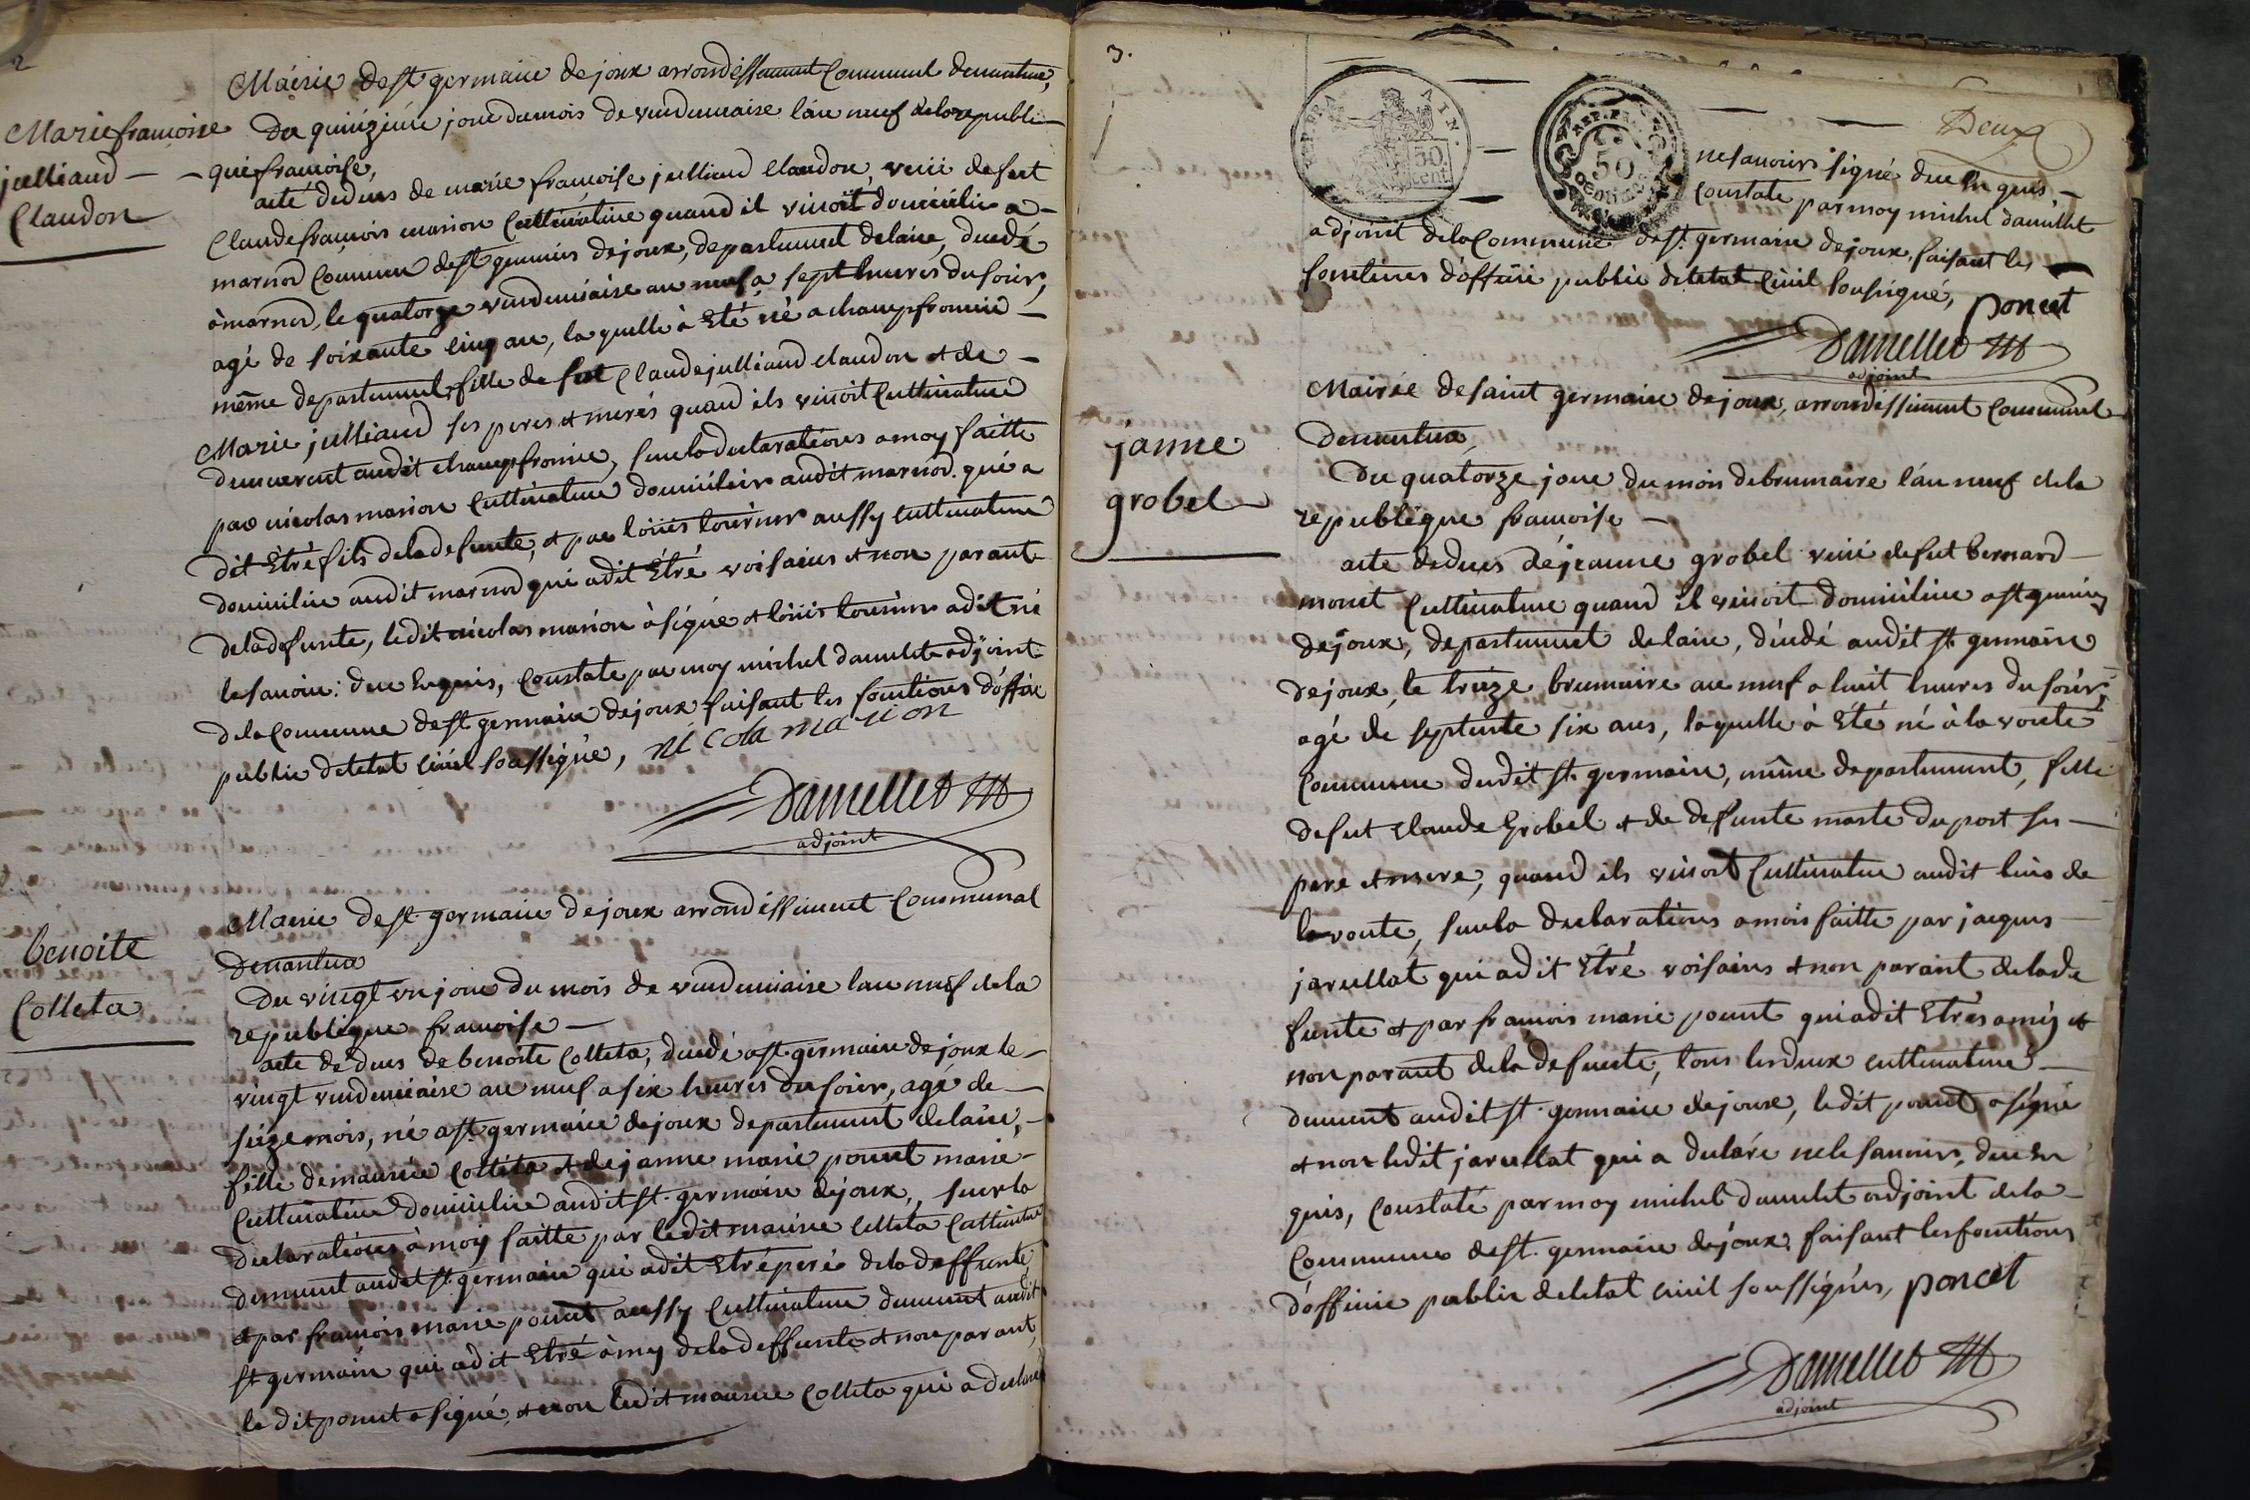 2
Mairie de st germain de joux arrondissement Communal denantua,
Marie francoise
julliand
Claudon
Du quinzieme jour du mois de vendemiaire l'an neuf de la republi-
que francoise,
acte de deces de marie françoise julliand Claudon, veuve de fut
Claude francois marion Cultivateur quand il vivoit domicilie a
marnod Commune de st germain de joux, departement de lain, decedé
à marnod, le quatorze vendemiaire an neuf a sept heures du soir,
agé de soixante cinq ans, la quelle à été né a champfromier
même departement, fille de fut Claude julliand claudon et de
Marie julliand ses peres et meres quand ils vivoit Cultivateur
demeurant audit champfromier, sur la declarations a moy faitte
par nicolas marion Cultivateur domicilier audit marnod qui a
dit être fils de la defunte, et par louis tournier aussy cultivateur
domicilie audit marnod qui adit être voisains et non parant
de la defunte, ledit nicolas marion à signé et louis tournier adit ne
le savoir: duement requis, Constate par moy michel damellet adjoint
de la Commune de st germain de joux faisant les fonctions d'officie
public de letat civil soussigne, nicola marion
Damellet
adjoint
benoite
Colleta
Mairie de st germain de joux arrondissement Communal
denantua
Du vingt un jour du mois de vendemiaire l'an neuf de la
republique francoise
acte de deces de benoite Colleta, decedé a st germain de joux le
vingt vendemiaire an neuf a six heures du soir, agé de
seize mois, né a st germain de joux departement de lain,
fille de maurice Colleta et de janne marie poncet marie
Cultivateur domicilie audit st germain de joux, sur la
declarations à moy faitte par ledit maurice Colleta Cultivateur
demeurant audit st germain qui adit être pere de la deffunte
et par francois marie poncet aussy Cultivateur demeurant audit
st germain qui adit être ámy de la deffunte et non parant,
le dit poncet a signé, et non ledit maurice Colleta qui a declaré
3.
Deux
50 cent
REP. FRA.
50
ne savoir signé
Constate par moy michel damellet
adjoint de la Commune de st germain de joux, faisant les
fonctions d'officie public de letat Civil soussigné, poncet
Damellet
adjoint
Mairie de saint germain de joux, arrondissement Communal
denantua,
janne
grobel
Du quatorze jour du mois de brumaire l'an neuf de la
republique francoise
acte de deces de jeanne grobel veuve de fut bernard
monet Cultivateur quand il vivoit domicilie a st germain
de joux, departement de lain, décédé audit st germain
de joux, le treize brumaire an neuf a huit heures du soir,
agé de septente six ans, laquelle à été né à la voute
Commune dudit st germain, même departement, fille
de fut Claude Grobel et de defunte marte duport ses
pere et mere, quand ils vivoit Cultivateur audit lieu de
la voute, sur la declarations a mois faitte par jacques
jarullat qui adit être voisains et non parant de la de
funte et par francois marie poncet qui adit être amis et
non parant de la defunte, tous les deux cultivateur
demeurant audit st germain de joux, ledit poncet a signé
et non ledit jarullat qui a declare ne le savoir,
quis, Constaté par moy michel damellet adjoint de la
Commune de st germain de joux, faisant les fonctions
d'officie public de letat civil soussignes, poncet
Damellet
adjoint